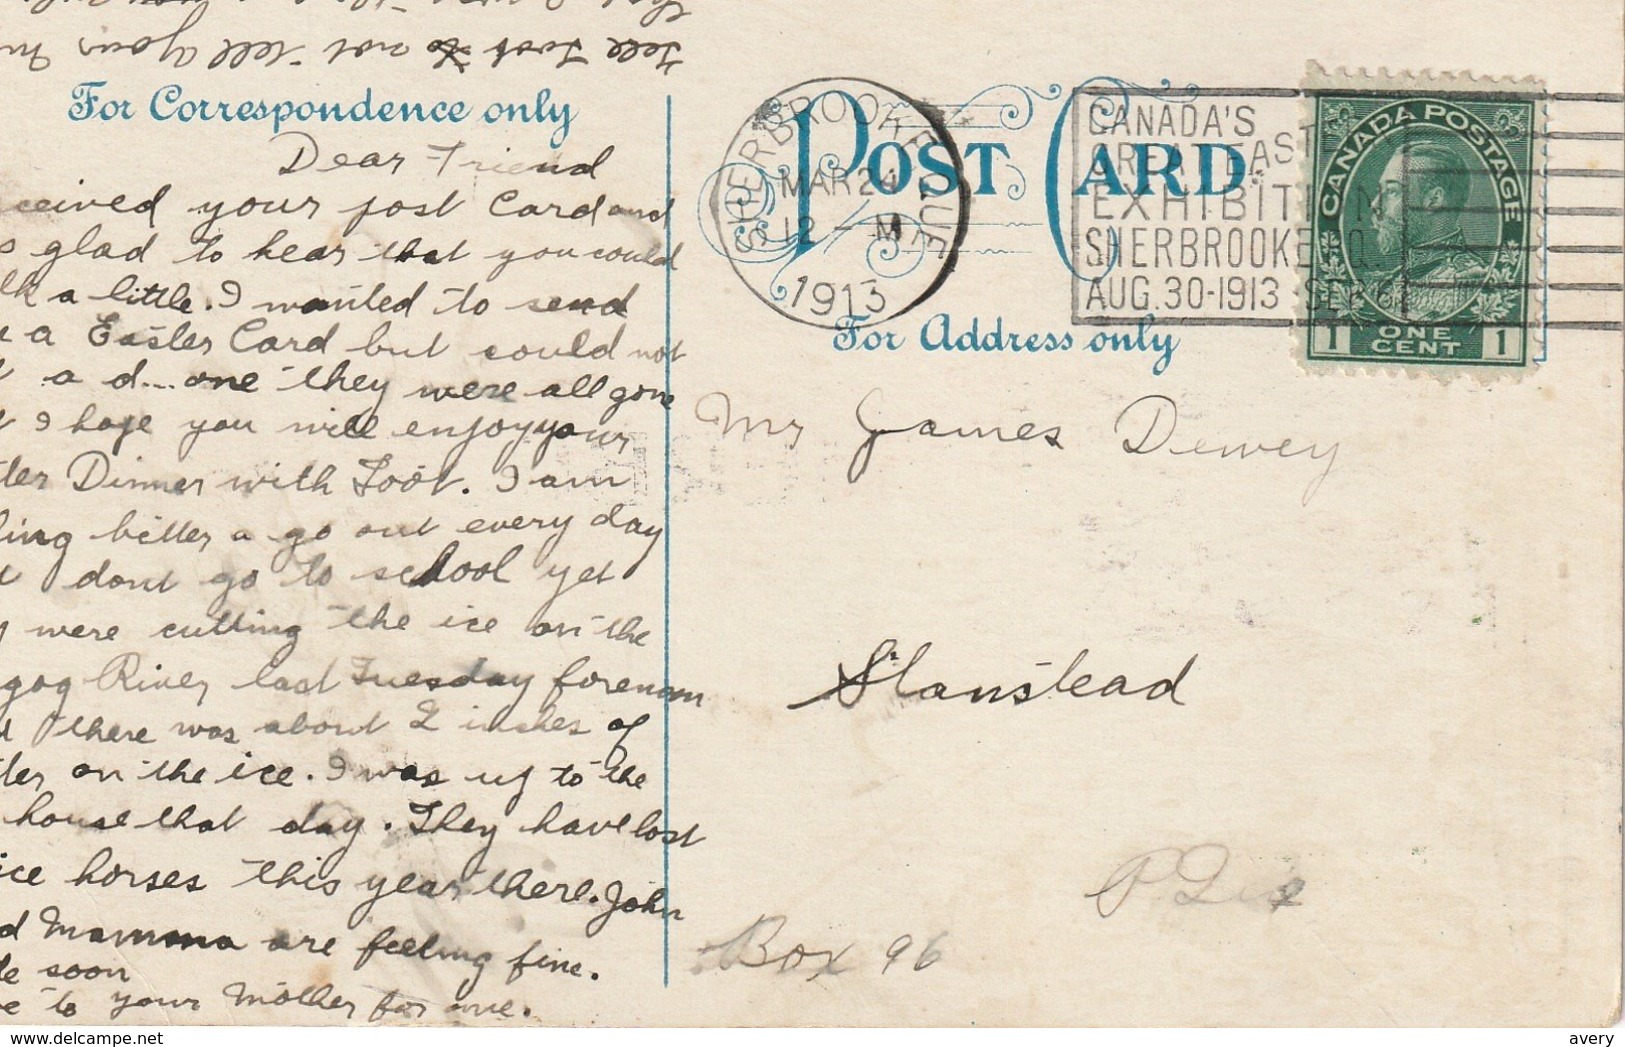 Tell Toot to not tell your
For Correspondence only
Dear Friend
ceived your post Card and
s glad to hear that you could
lk a little. I wanted to send
u a Easter Card but could not
t a d... one they were all gone
t I hope you will enjoy your
ter Dinner with Toot. I am
ling better a go out every day
t dont go to school yet
y were cutting the ice on the
gog River last Tuesday forenoon
d there was about 2 inches of
ter on the ice. I was up to the
house that day. They have lost
ice horses this year there. John
d Mamma are feeling fine.
te soon
ve to your Mother for me.
POST CARD
For Address only
SHERBROOKE QUE
MAR 24
12 - M
1913
CANADA'S
GREAT EAST
EXHIBITION
SHERBROOKE, Q
AUG. 30-1913 SE
CANADA POSTAGE
1 ONE CENT 1
Mr James Dewey
Stanstead
P. Que
Box 96
avery